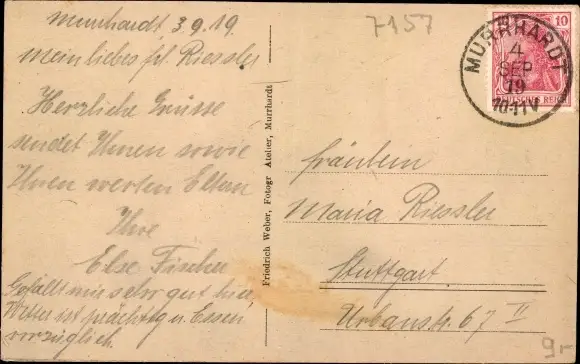 Murrhardt 3.9.19.
mein liebes frl. Riessler
Herzliche Grüsse
sendet Ihnen sowie
Ihren werten Eltern
Ihre
Else Fischer
Gefällt mir sehr gut hier,
Wetter ist prächtig u. Essen
vorzüglich.
Friedrich Weber, Fotogr Atelier, Murrhardt
7157
MURRHARDT
4
SEP
19
10-11V
10
DEUTSCHES REICH
Fräulein
Maria Riessler
Stuttgart
Urbanstr. 67 II
9-